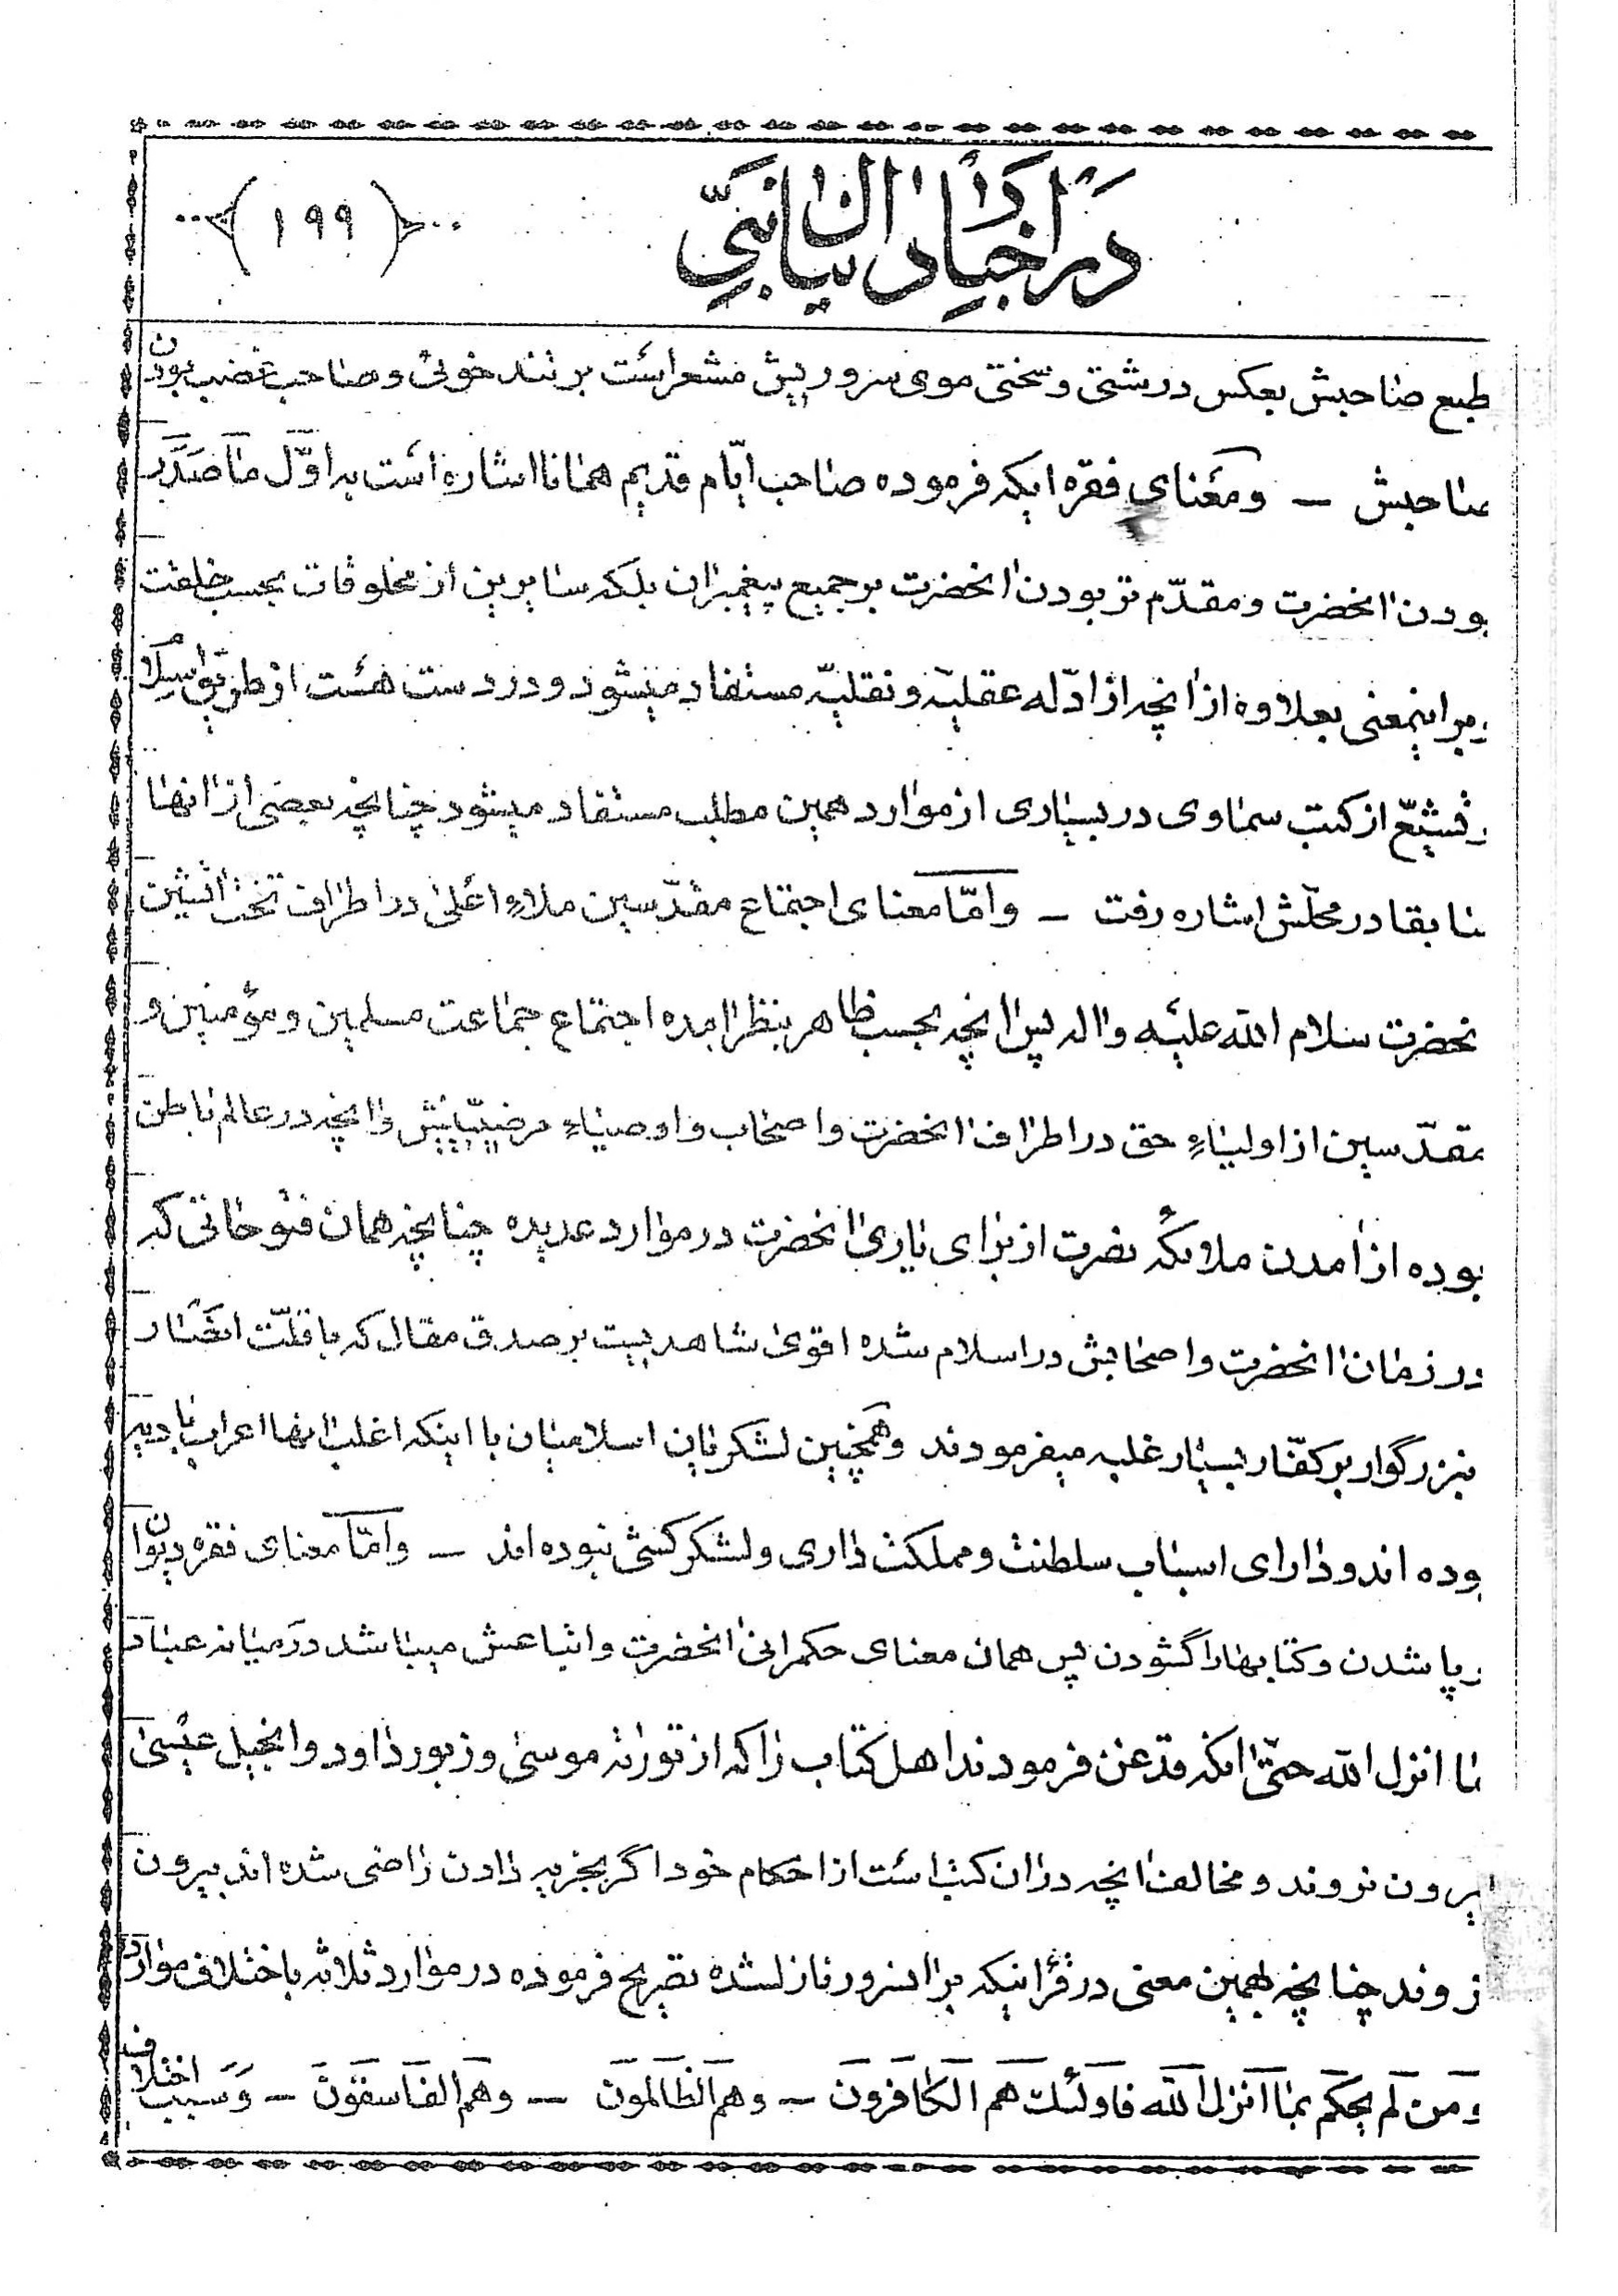 در اخبار دانیال نبی
(۱۹۹)
طبع صاحبش بعکس درشتی و سختی موی سر و ریش مشعر است بر تند خوئی و صاحب غضب بودن
صاحبش — و معنای فقره اینکه فرموده صاحب ایّام قدیم همانا اشاره است بر اوّل ما صَدَر
بودن انحضرت و مقدّم تر بودن انحضرت بر جمیع پیغمبران بلکه سایرین از مخلوقات بحسب خلقت
بر اینمعنی بعلاوه از انچه از ادّله عقلیّه و نقلیّه مستفاد میشود و در دست هست از طریق اسلام
تتبّع از کتب سماوی در بسیاری از موارد همین مطلب مستفاد میشود چنانچه بعضی از انها
سابقا در محلّش اشاره رفت — و امّا معنای اجتماع مقدّسین ملاء اعلی در اطراف تخت
نحضرت سلام الله علیه و اله پس انچه بحسب ظاهر بنظر امده اجتماع جماعت مسلمین و مؤمنین و
مقدّسین از اولیاء حق در اطراف انحضرت و اصحاب و اوصیاء مرضیّینش و انچه در عالم باطن
بوده از امدن ملائکه نصرت از برای یاری انحضرت در موارد عدیده چنانچه همان فتوحاتی که
در زمان انحضرت و اصحابش در اسلام شده اقوی شاهدیست بر صدق مقال که با قلّت انصار
نبزرگوار بر کفّار بسیار غلبه میفرمودند و همچنین لشکریان اسلامیان با اینکه اغلب انها اعراب بادیه
بوده اند و دارای اسباب سلطنت و مملکت داری و لشکر کشی نبوده اند — و امّا معنای فقره دیوان
برپا شدن و کتابها را گشودن پس همان معنای حکمرانی انحضرت و اتباعش میباشد در میانه عباد
بما انزل الله حتّی انکه قدغن فرمودند اهل کتاب را که از توراة موسی و زبور داود و انجیل عیسی
بیرون نروند و مخالفت انچه در ان کتب است از احکام خود اگر بجزیه دادن راضی شده اند بیرون
نروند چنانچه بهمین معنی در قرانیکه بر انسرور نازلشده تصریح فرموده در موارد ثلاثه باختلاف موارد
و من لم یحکم بما انزل الله فاولئک هم الکافرون — و هم الظالمون — و هم الفاسقون — و سبب اختلاف